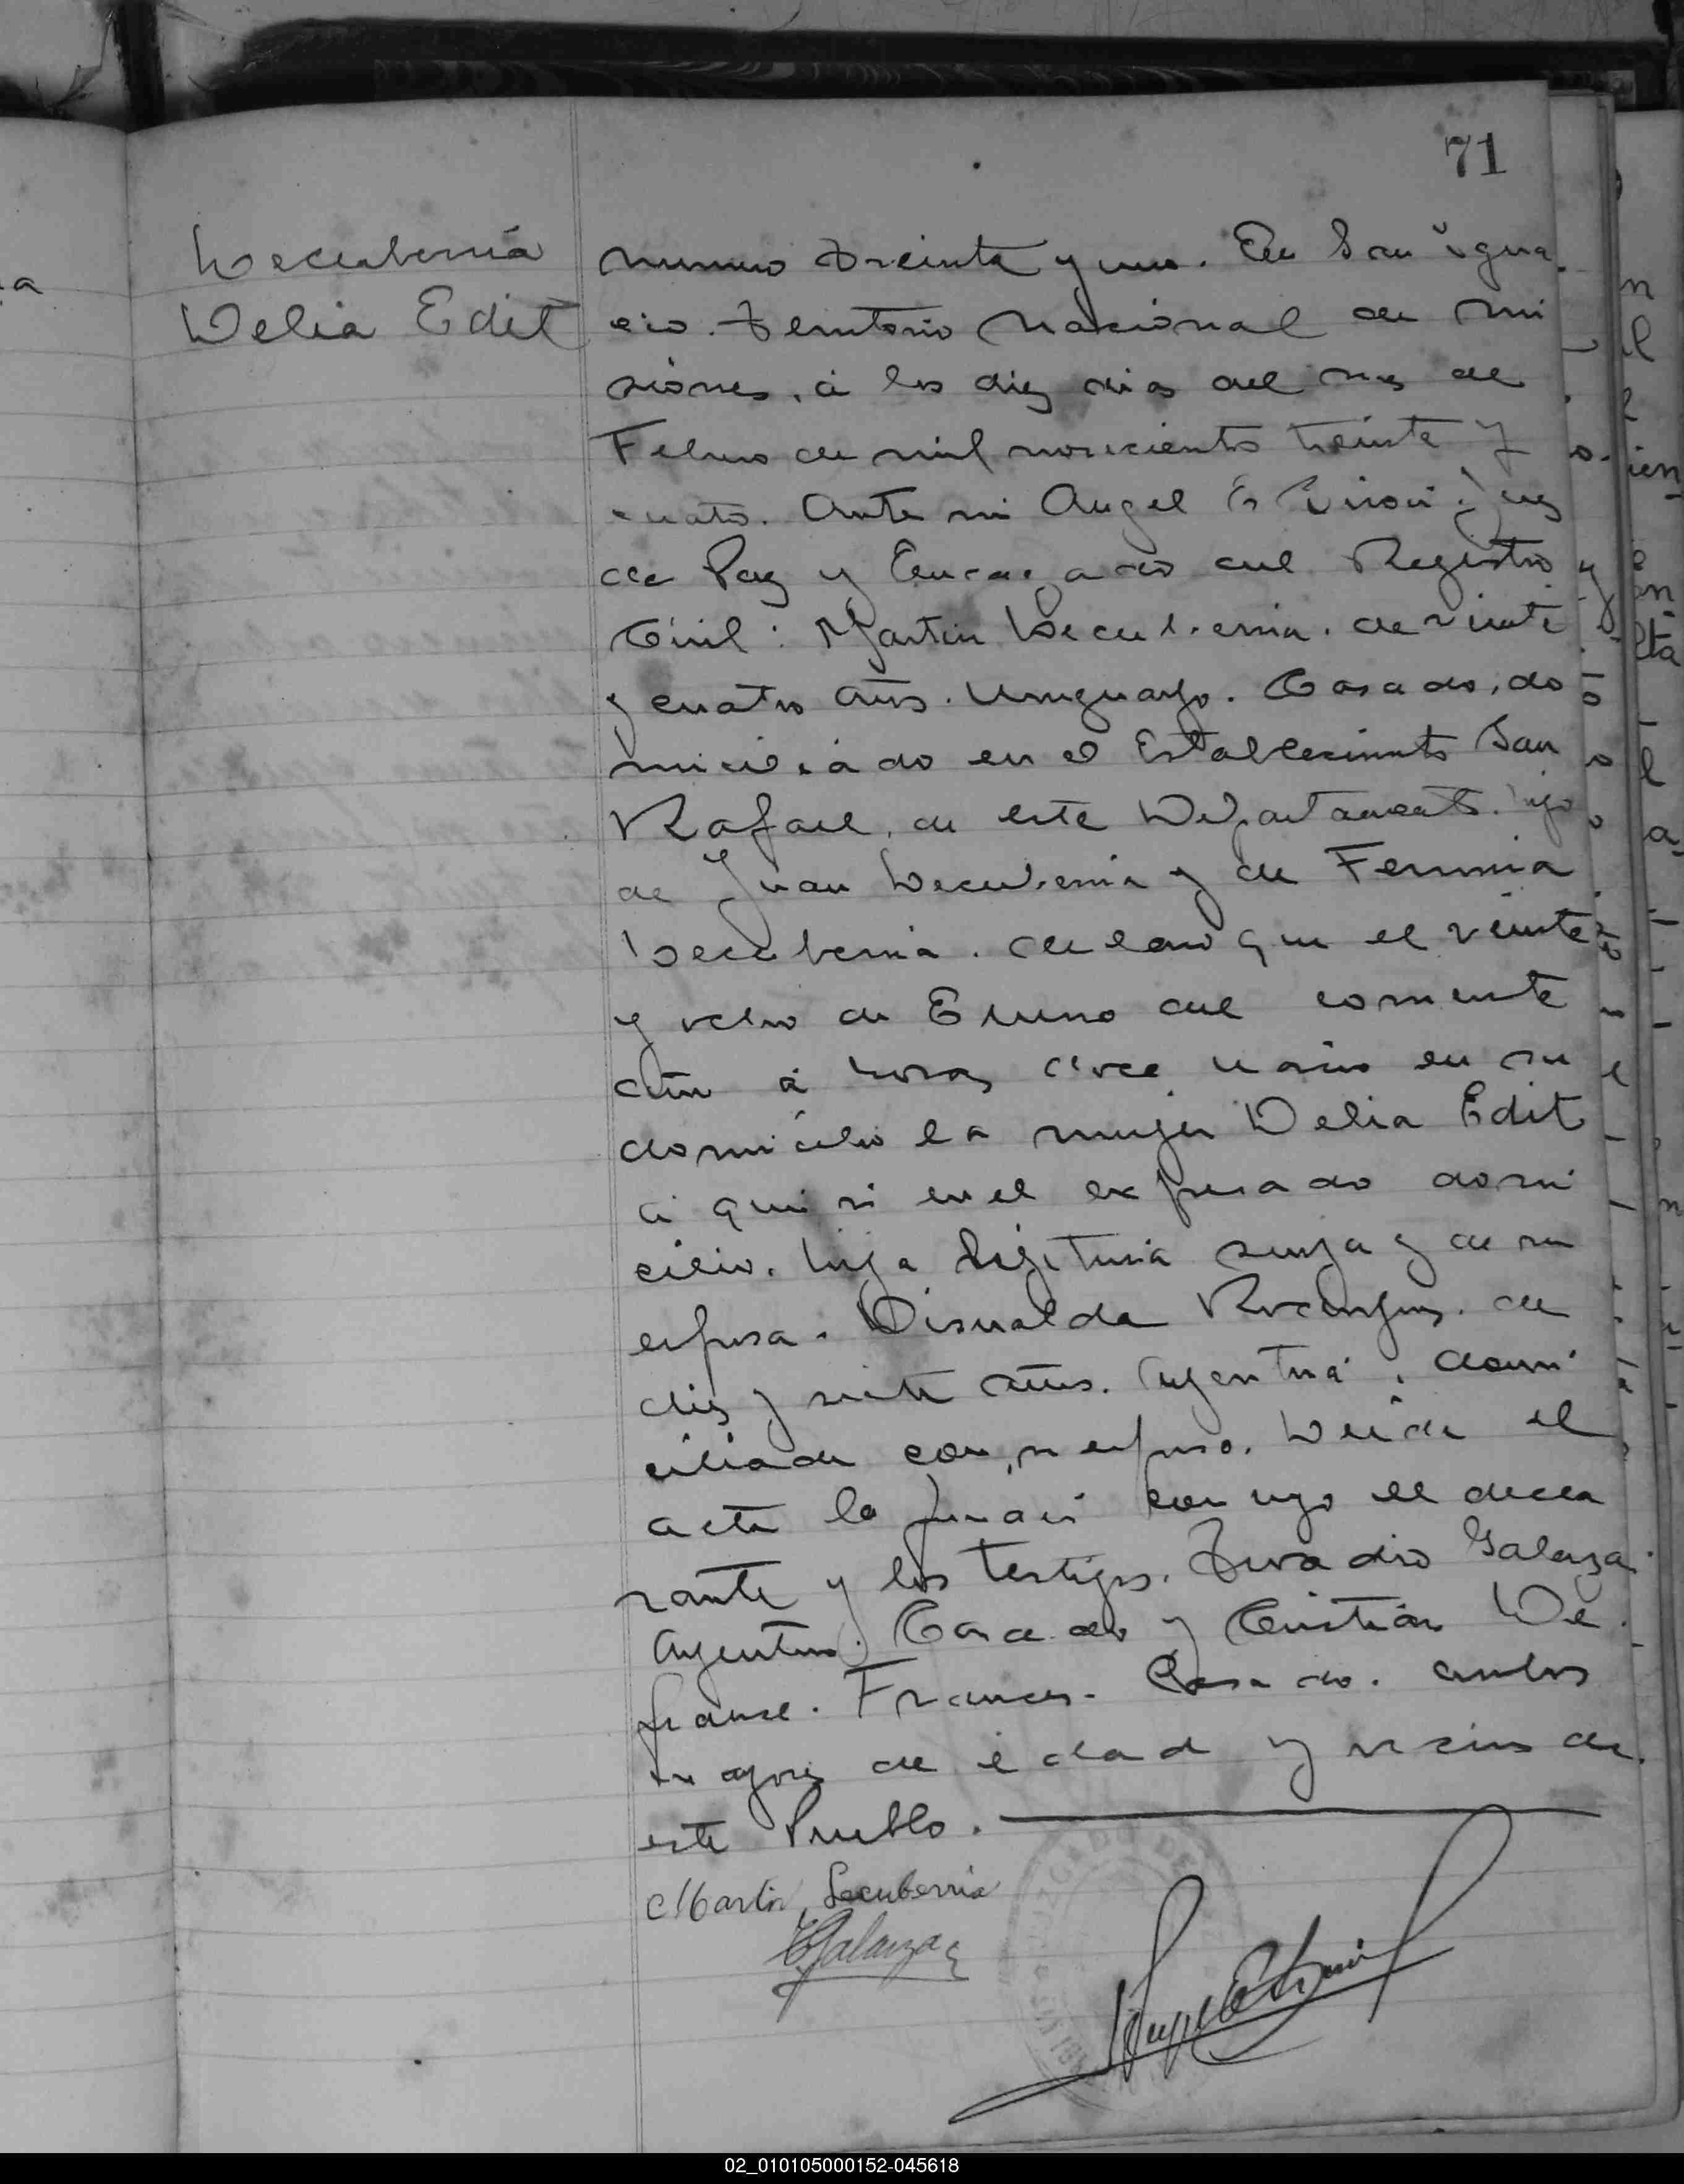 71
Lecuberria
Delia Edit
numero treinta y uno. En San Igna
cio. Territorio Nacional de Mi
siones, á los diez dias del mes de
Febrero de mil novecientos treinta y
cuatro. Ante mi Angel E. Juez
de Paz y Encargado del Registro
Civil: Martin Lecuberria. de veinte
y cuatro años. Uruguayo. Casado, do
miciliado en el Establecimiento San
Rafael, de este Departamento. hijo
de Juan Lecuberria y de Fermina
Lecuberria. declaró que el veinte
y ocho de Enero del corriente
año á horas doce nació en su
domicilio la mujer Delia Edit
á quien vi en el expresado domi
cilio. hija legitima suya y de su
esposa. Disnalda Rodriguez. de
diez y siete años. Argentina, domi
ciliada con su esposo. Leida el
acta la firmaron conmigo el decla
rante y los testigos. Galarza
Argentino. Casado y Cristián De
franse. Frances. Casado. ambos
mayores de edad y vecinos de
este Pueblo.
Martin Lecuberria
Galarza
JUZGADO DE